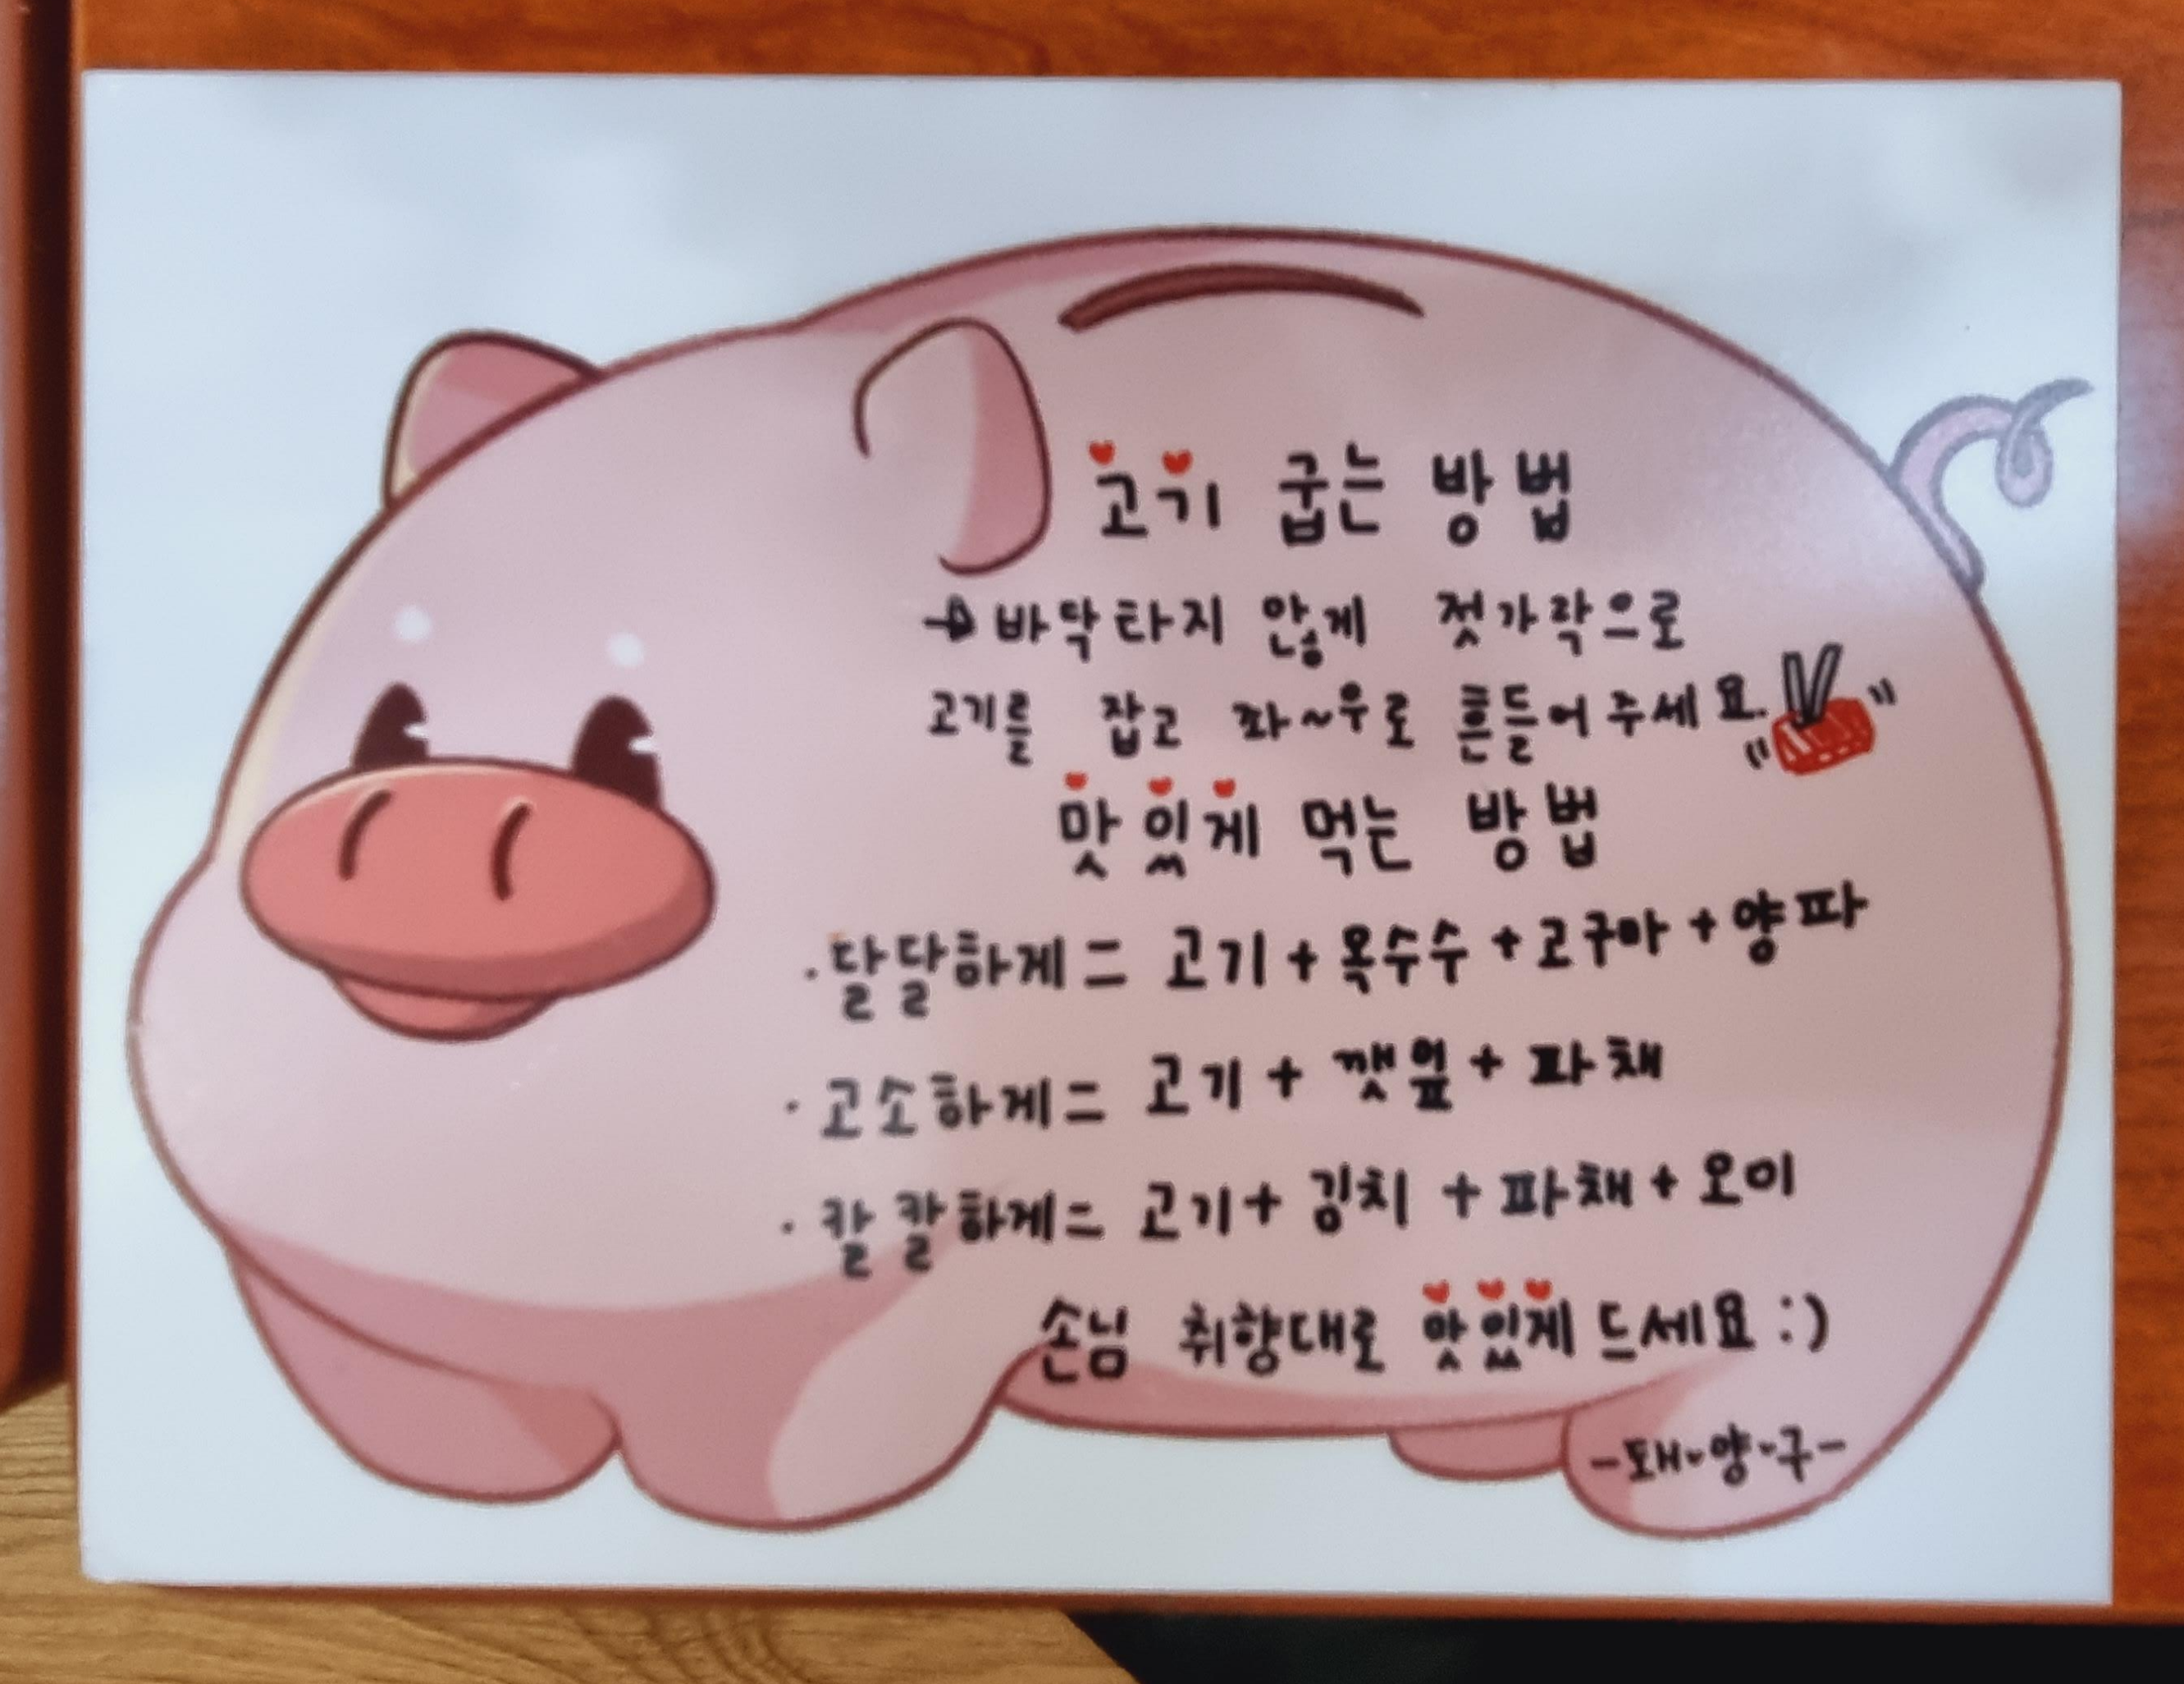 고기 굽는 방법
→ 바닥타지 않게 젓가락으로
고기를 잡고 좌~우로 흔들어주세요.
맛있게 먹는 방법
· 달달하게 = 고기 + 옥수수 + 고구마 + 양파
· 고소하게 = 고기 + 깻잎 + 파채
· 칼칼하게 = 고기 + 김치 + 파채 + 오이
손님 취향대로 맛있게 드세요 :)
-돼~양~구-